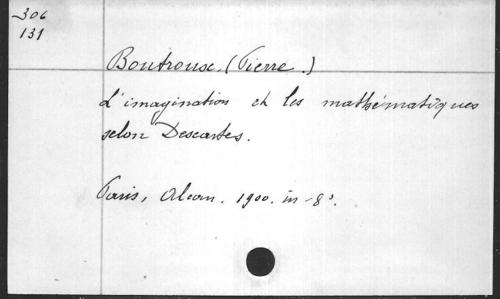 306
131
Boutroux. (Pierre.)
L'imagination et les mathématiques
selon Descartes.
Paris, Alcan. 1900. in-8°.